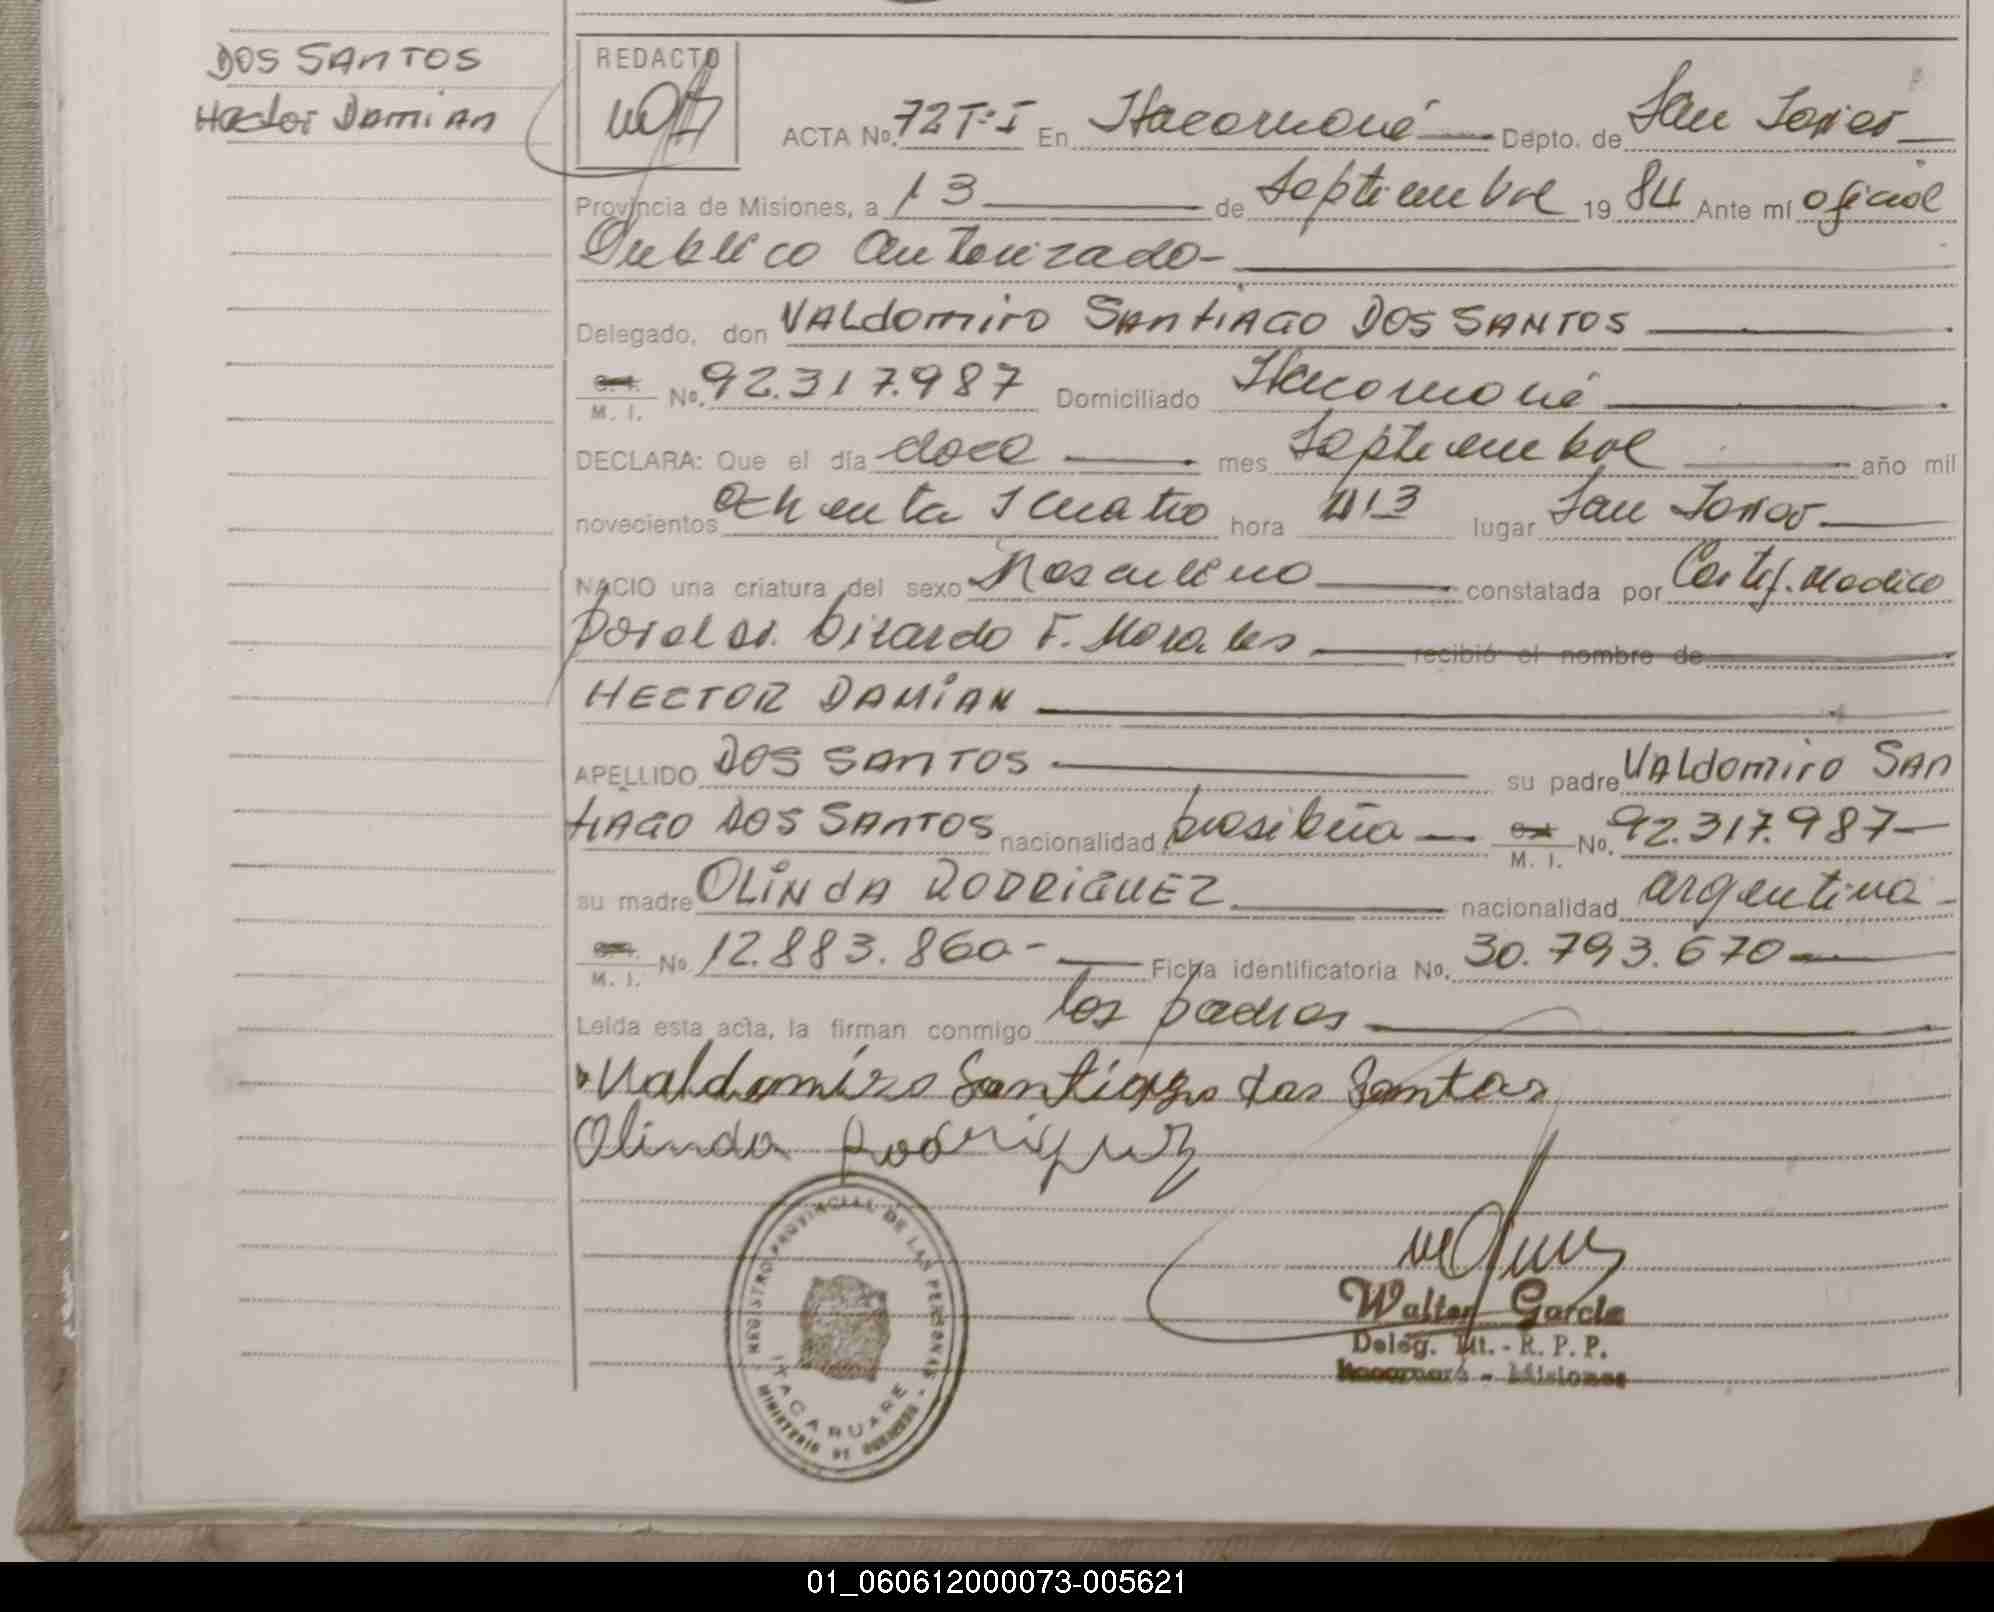 DOS SANTOS
Hector Damian
REDACTO
ACTA No. 72 T: I En Itacaruaré Depto. de San Javier
Provincia de Misiones, a 13 de Septiembre 19 84 Ante mí oficial
Publico Autorizado-
Delegado, don VALdomiro SAntiAGO DOS SANTOS
M. I. No. 92.317.987 Domiciliado Itacaruaré
DECLARA: Que el día doce mes Septiembre año mil
novecientos ochenta y cuatro hora 13 lugar San Javier
NACIO una criatura del sexo Masculino constatada por Certif. Medico
por el Dr. Girardo F. Morales recibió el nombre de
HECTOR DAMIAN
APELLIDO DOS SANTOS su padre VALdomiro SAN
tiAGO DOS SANTOS nacionalidad brasileña M. I. No. 92.317.987-
su madre OLINdA RODRIGUEZ nacionalidad argentina-
M. I. No. 12.883.860- Ficha identificatoria No. 30.793.670
Leída esta acta, la firman conmigo los padres
Valdomiro Santiago dos Santos
Olinda Rodriguez
REGISTRO PROVINCIAL DE LAS PERSONAS -
ITACARUARE
MINISTERIO DE GOBIERNO
Walter García
Deleg. Tit. - R. P. P.
Itacaruaré - Misiones
01_060612000073-005621